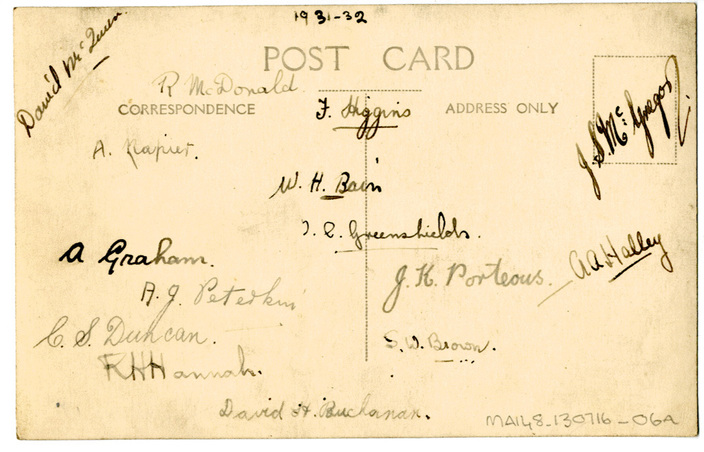 1931-32
David McQueen
POST CARD
R McDonald
CORRESPONDENCE
F. Higgins
ADDRESS ONLY
J. S. McGregor
A. Napier.
W. H. Bain
Greenshields.
A Graham.
A A Halley
J. K. Porteous.
A. J. Peterkin
C. S. Duncan.
S. W. Brown.
R H Hannah.
David H. Buchanan.
MA148-130716-06A